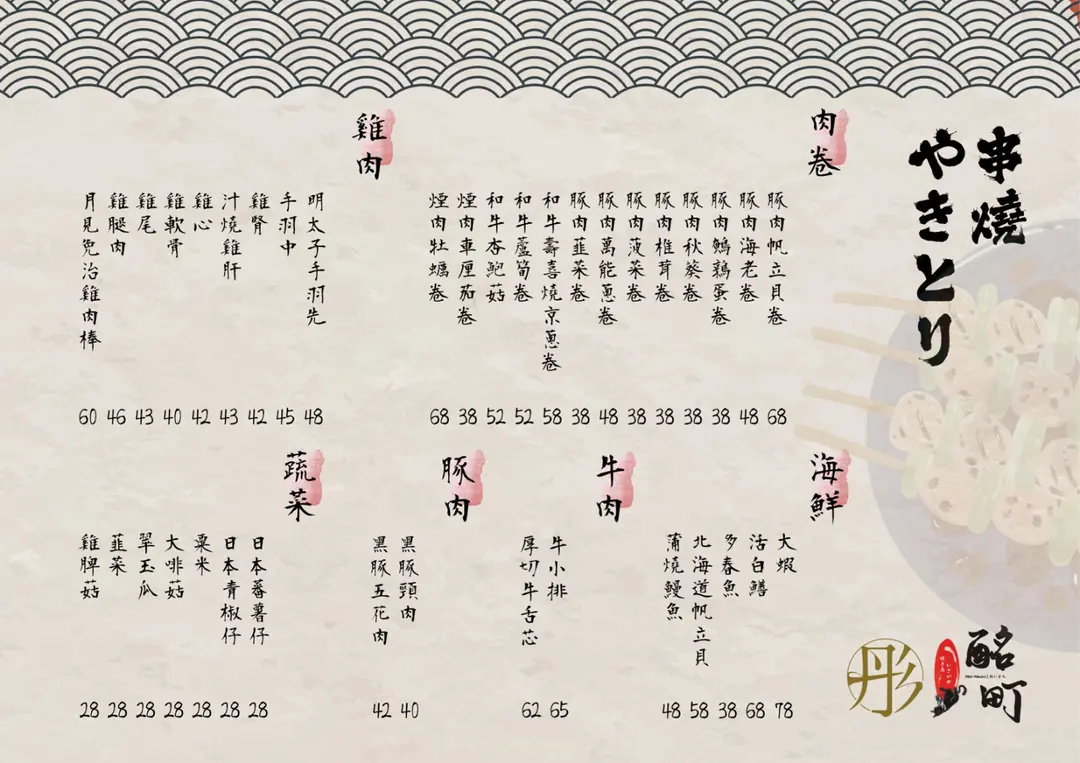 串燒
やきとり
肉卷
豚肉帆立貝卷 68
豚肉海老卷 48
豚肉鵪鶉蛋卷 38
豚肉秋葵卷 38
豚肉椎茸卷 38
豚肉菠菜卷 38
豚肉萬能蔥卷 48
豚肉韮菜卷 38
和牛壽喜燒京蔥卷 58
和牛蘆筍卷 52
和牛杏鮑菇 52
煙肉車厘茄卷 38
煙肉牡蠣卷 68
雞肉
明太子手羽先 48
手羽中 45
雞腎 42
汁燒雞肝 43
雞心 42
雞軟骨 40
雞尾 43
雞腿肉 46
月見免治雞肉棒 60
海鮮
大蝦 78
活白鱔 68
多春魚 38
北海道帆立貝 58
蒲燒鰻魚 48
牛肉
牛小排 65
厚切牛舌芯 62
豚肉
黑豚頸肉 40
黑豚五花肉 42
蔬菜
日本蕃薯仔 28
日本青椒仔 28
粟米 28
大啡菇 28
翠玉瓜 28
韮菜 28
雞脾菇 28
彤
酩町